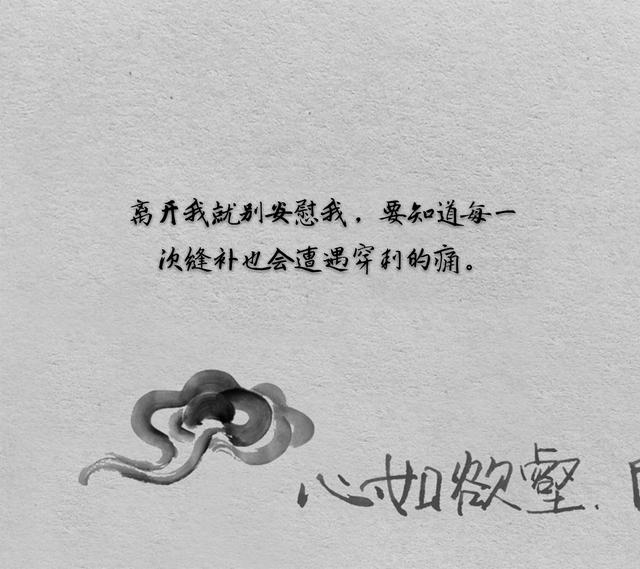 离开我就别安慰我，要知道每一
次缝补也会遭遇穿刺的痛。
心如欲壑.